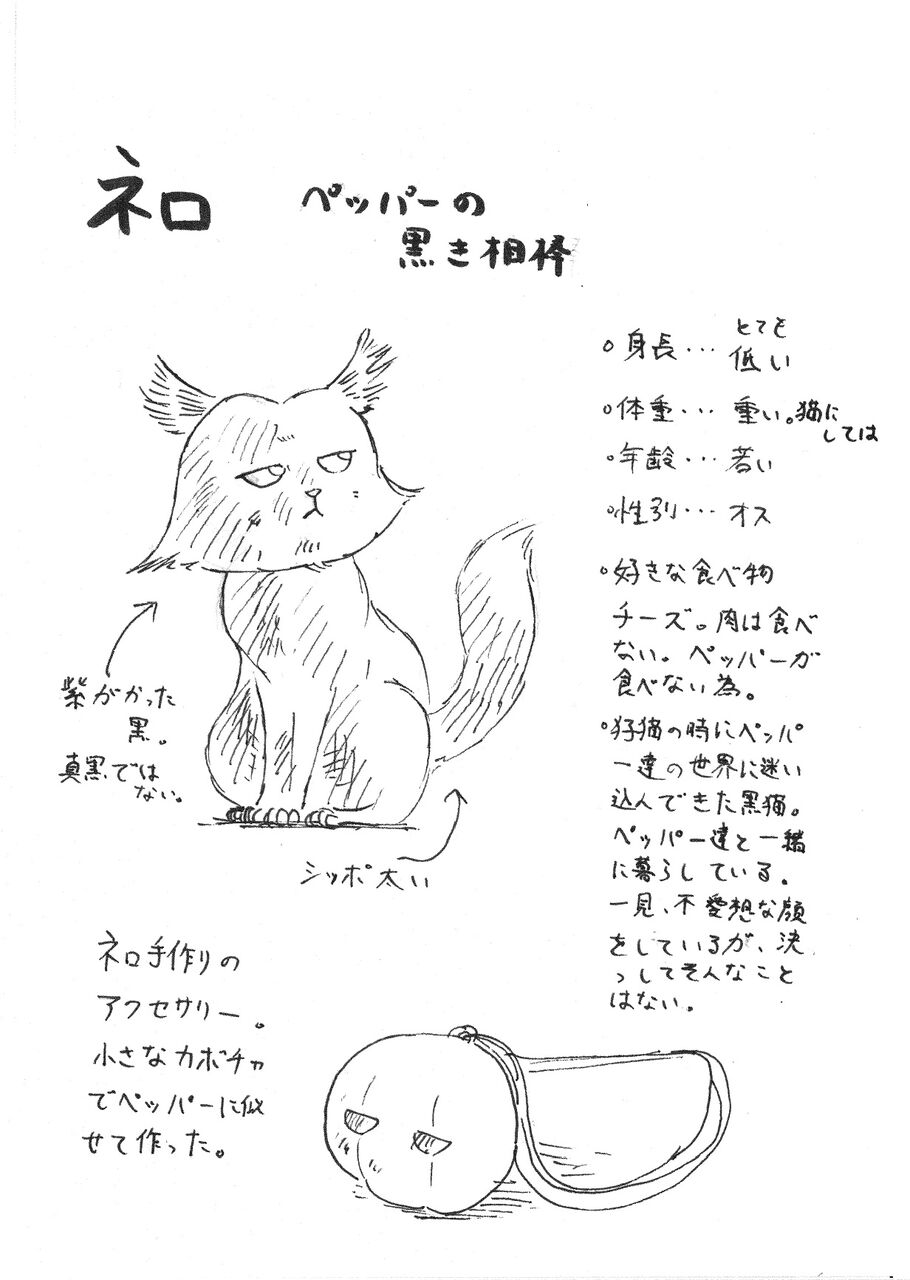 ネロ
ペッパーの
黒き相棒
・身長… とても
低い
・体重… 重い。猫に
しては
・年齢… 若い
・性別… オス
・好きな食べ物
チーズ。肉は食べ
ない。ペッパーが
食べない為。
・仔猫の時にペッパ
ー達の世界に迷い
込んできた黒猫。
ペッパー達と一緒
に暮らしている。
一見、不愛想な顔
をしているが、決
っしてそんなこと
はない。
紫がかった
黒。
真黒では
ない。
シッポ太い
ネロ手作りの
アクセサリー。
小さなカボチャ
でペッパーに似
せて作った。